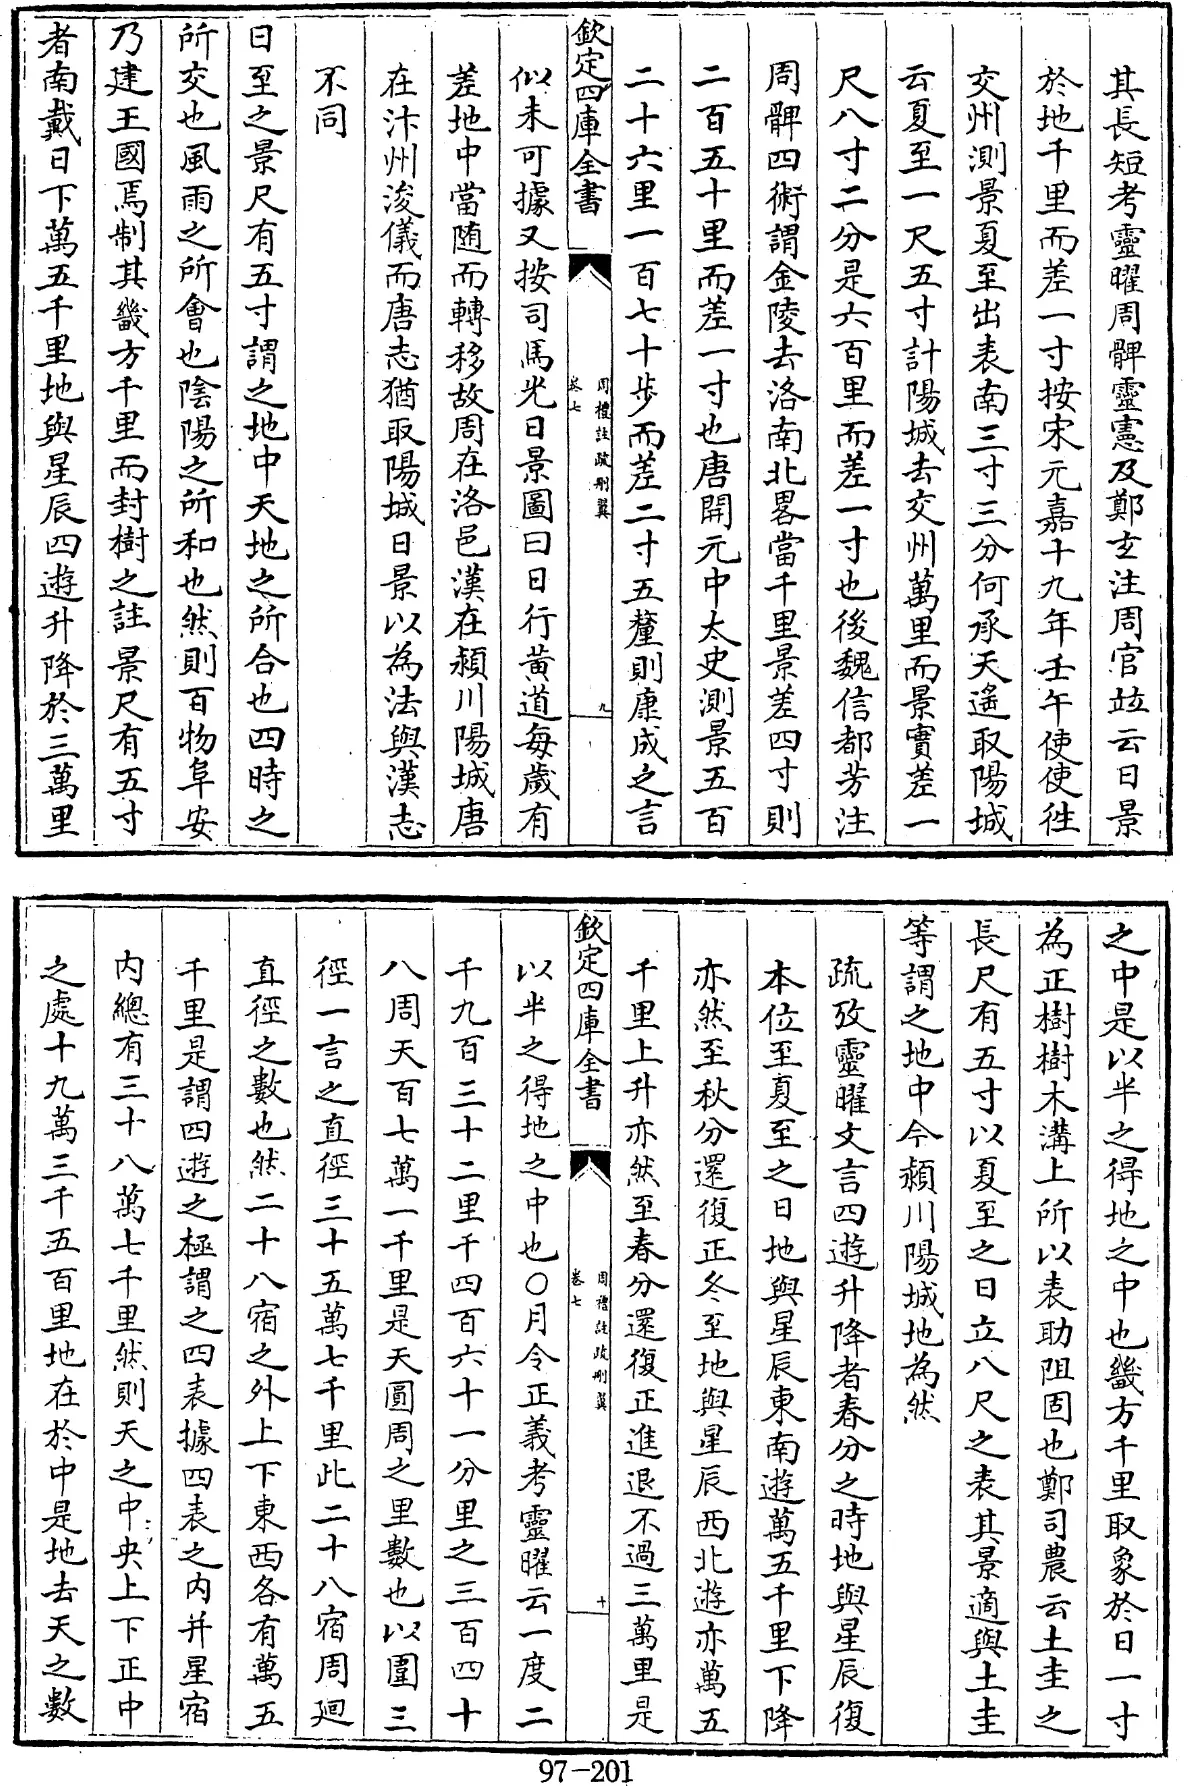 其長短考靈曜周髀靈憲及鄭玄注周官竝云日景
於地千里而差一寸按宋元嘉十九年壬午使使徃
交州測景夏至出表南三寸三分何承天遙取陽城
云夏至一尺五寸計陽城去交州萬里而景實差一
尺八寸二分是六百里而差一寸也後魏信都芳注
周髀四術謂金陵去洛南北畧當千里景差四寸則
二百五十里而差一寸也唐開元中太史測景五百
二十六里一百七十步而差二寸五釐則康成之言
欽定四庫全書
周禮註疏刪翼
卷七
九
似未可據又按司馬光日景圖曰日行黃道每歲有
差地中當随而轉移故周在洛邑漢在潁川陽城唐
在汴州浚儀而唐志猶取陽城日景以為法與漢志
不同
日至之景尺有五寸謂之地中天地之所合也四時之
所交也風雨之所會也陰陽之所和也然則百物阜安
乃建王國焉制其畿方千里而封樹之註景尺有五寸
者南戴日下萬五千里地與星辰四遊升降於三萬里
之中是以半之得地之中也畿方千里取象於日一寸
為正樹樹木溝上所以表助阻固也鄭司農云土圭之
長尺有五寸以夏至之日立八尺之表其景適與土圭
等謂之地中今潁川陽城地為然
疏攷靈曜文言四遊升降者春分之時地與星辰復
本位至夏至之日地與星辰東南遊萬五千里下降
亦然至秋分還復正冬至地與星辰西北遊亦萬五
千里上升亦然至春分還復正進退不過三萬里是
欽定四庫全書
周禮註疏刪翼
卷七
十
以半之得地之中也○月令正義考靈曜云一度二
千九百三十二里千四百六十一分里之三百四十
八周天百七萬一千里是天圓周之里數也以圍三
徑一言之直徑三十五萬七千里此二十八宿周迴
直徑之數也然二十八宿之外上下東西各有萬五
千里是謂四遊之極謂之四表據四表之内并星宿
内總有三十八萬七千里然則天之中央上下正中
之處十九萬三千五百里地在於中是地去天之數
97-201